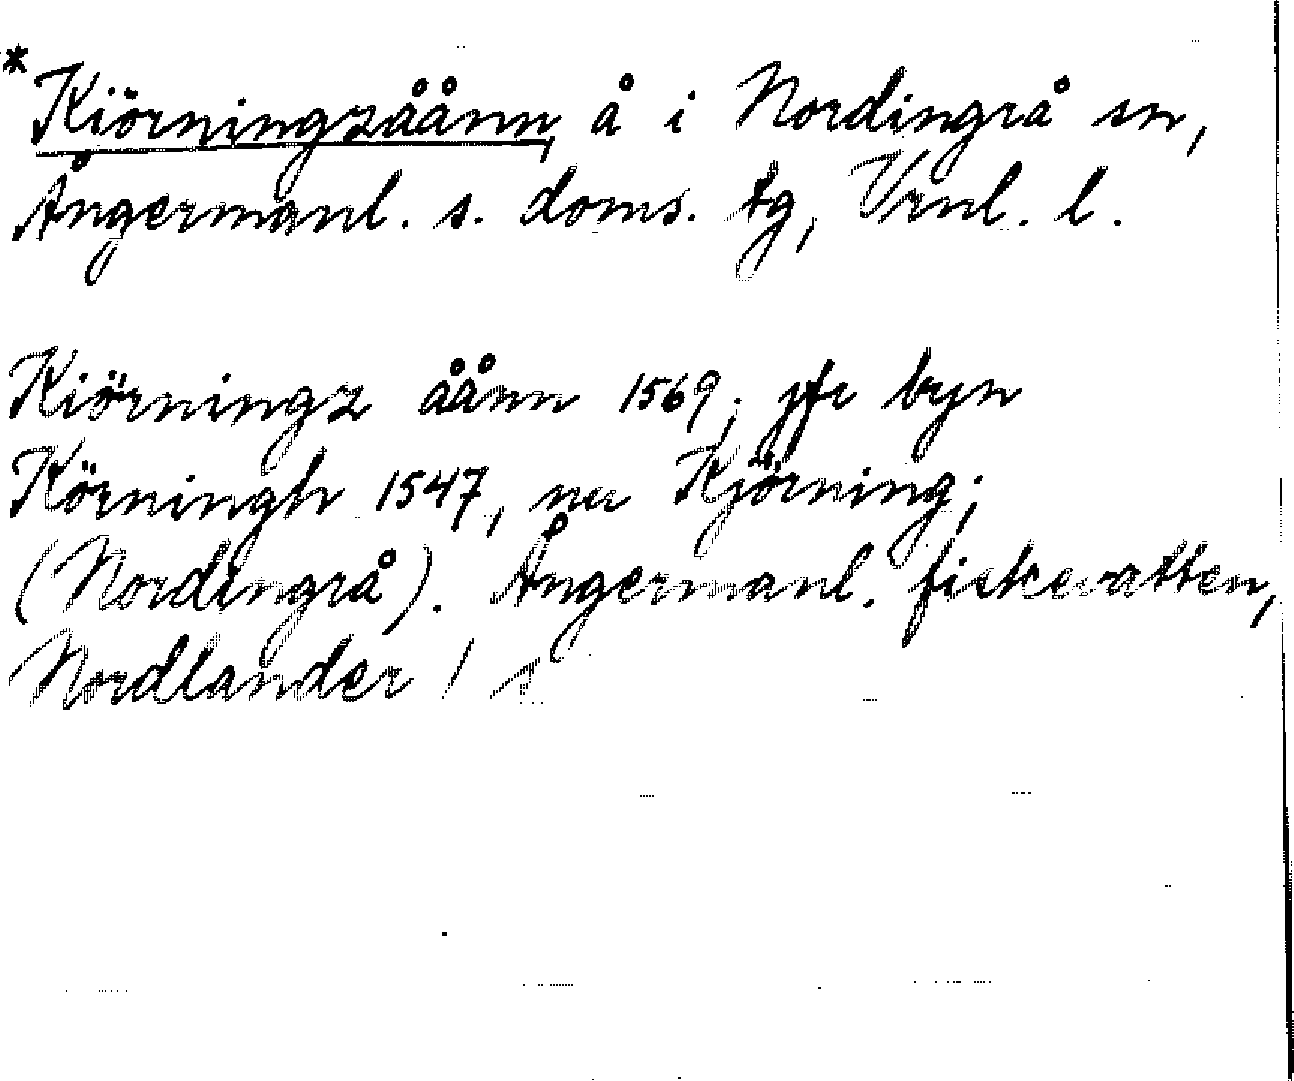 *Kiörningzåånn, å i Nordingrå sn,
Ångermanl. s. doms. tg, Vrnl. l.
Kiörningz åånn 1569; jfr byn
Körningh 1547, nu Kjörning;
(Nordingrå). Ångermanl. fiskevatten,
Nordlander